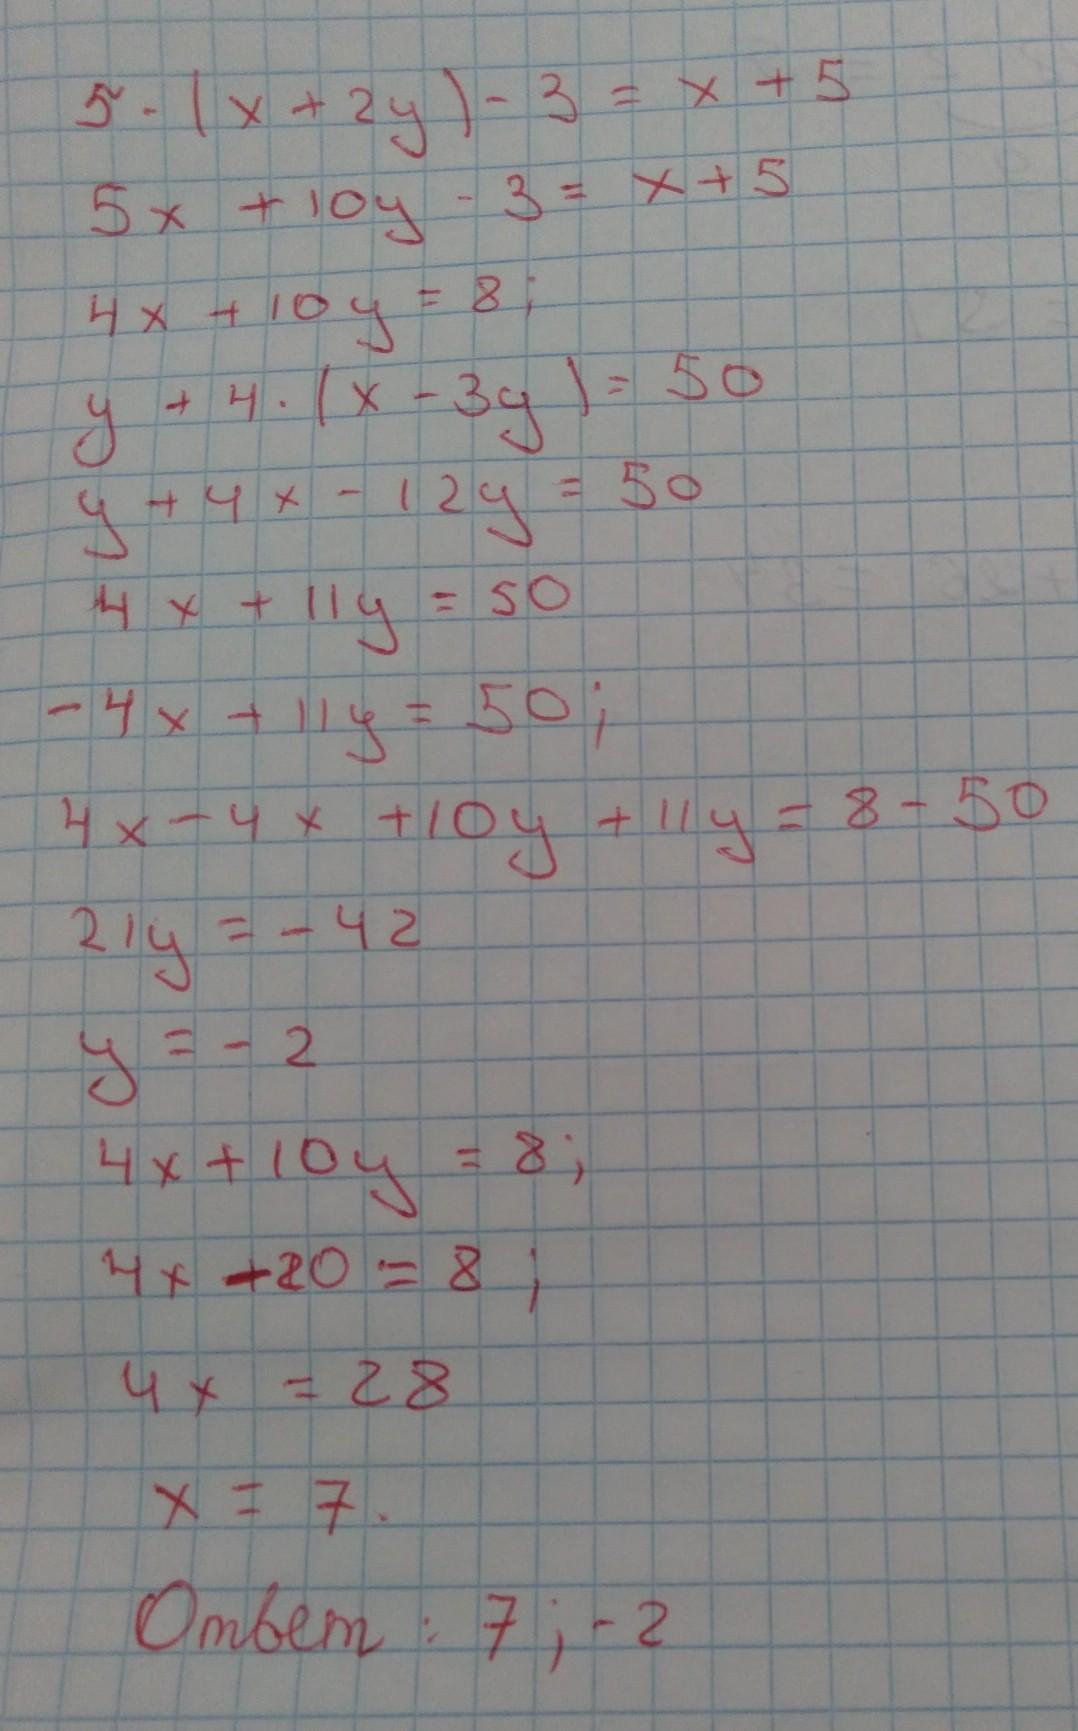 5·(x+2y)-3=x+5
5x+10y-3=x+5
4x+10y=8;
y+4·(x-3y)=50
y+4x-12y=50
4x+11y=50
-4x+11y=50;
4x-4x+10y+11y=8-50
21y=-42
y=-2
4x+10y=8;
4x-20=8;
4x=28
x=7.
Ответ: 7;-2